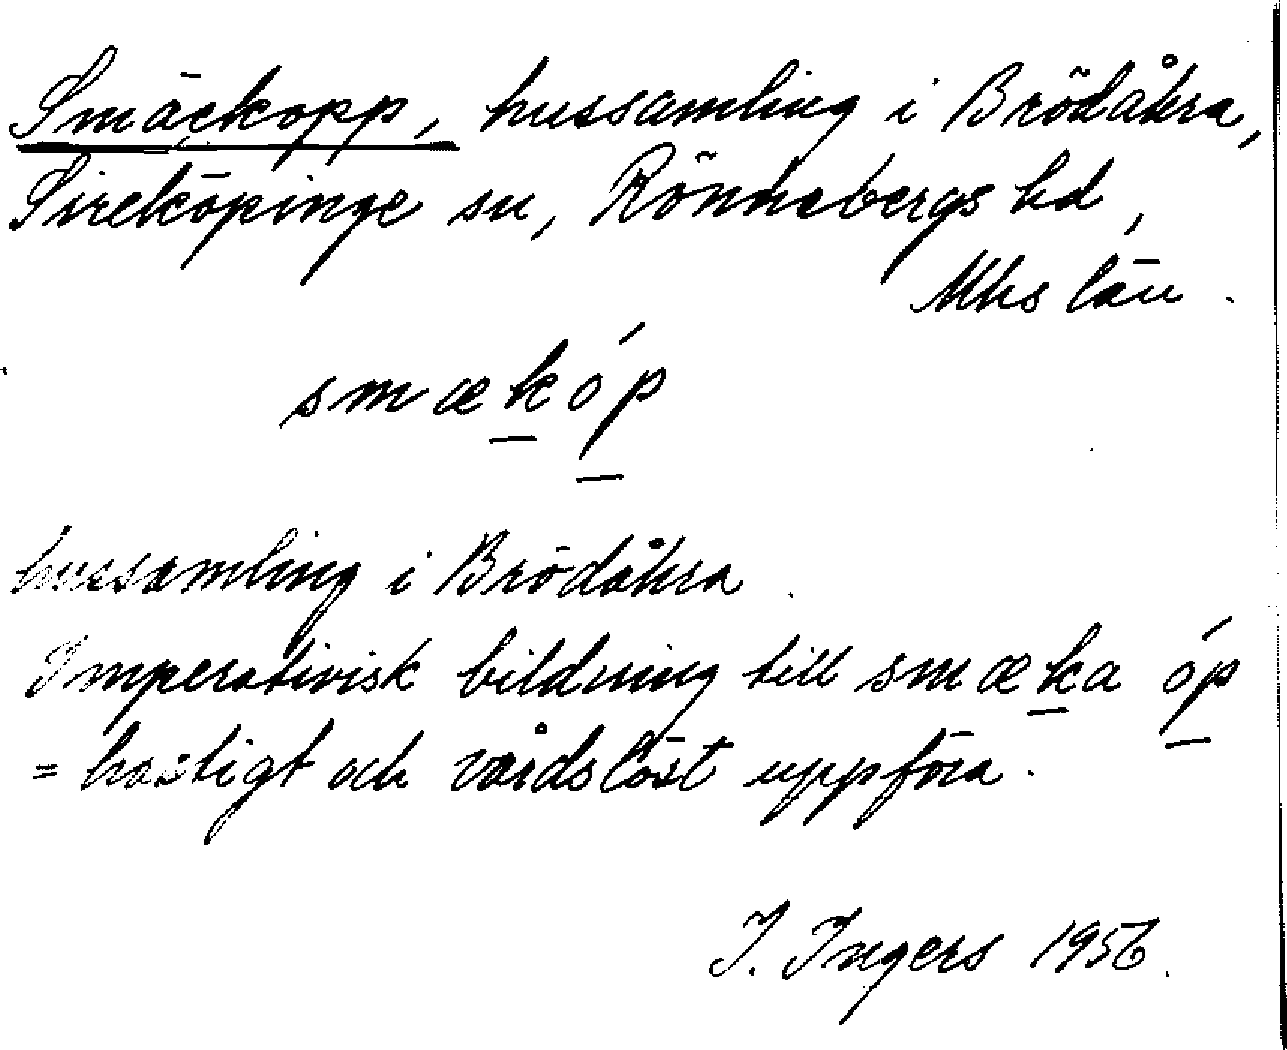 Smäckopp, hussamling i Brödåkra,
Sireköpinge sn, Rönnebergs hd,
Mhs län.
smækóp
hussamling i Brödåkra.
Imperativisk bildning till smæka óp
= hastigt och vårdslöst uppföra.
I. Ingers 1956.